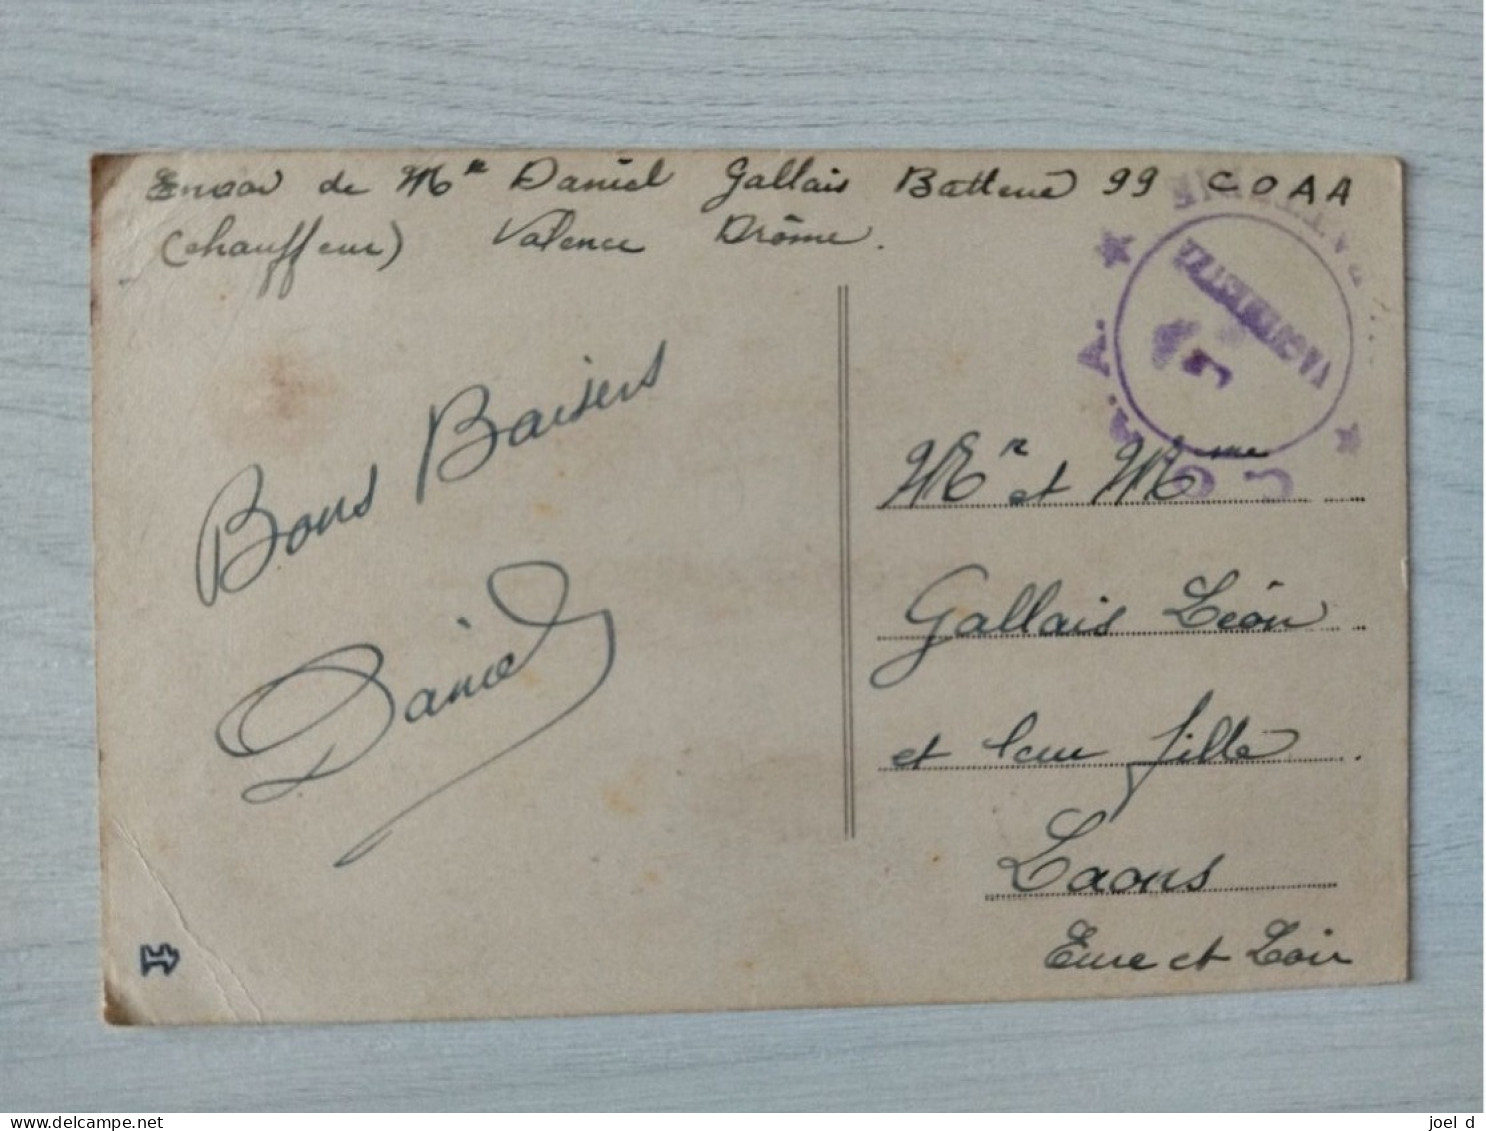 Envoi de Mr Daniel Gallais Batterie 99 C O A A
(chauffeur) Valence Drôme.
Bons Baisers
Daniel
Mr et Mme
Gallais Léon
et leur fille.
Laons
Eure et Loir
joel d